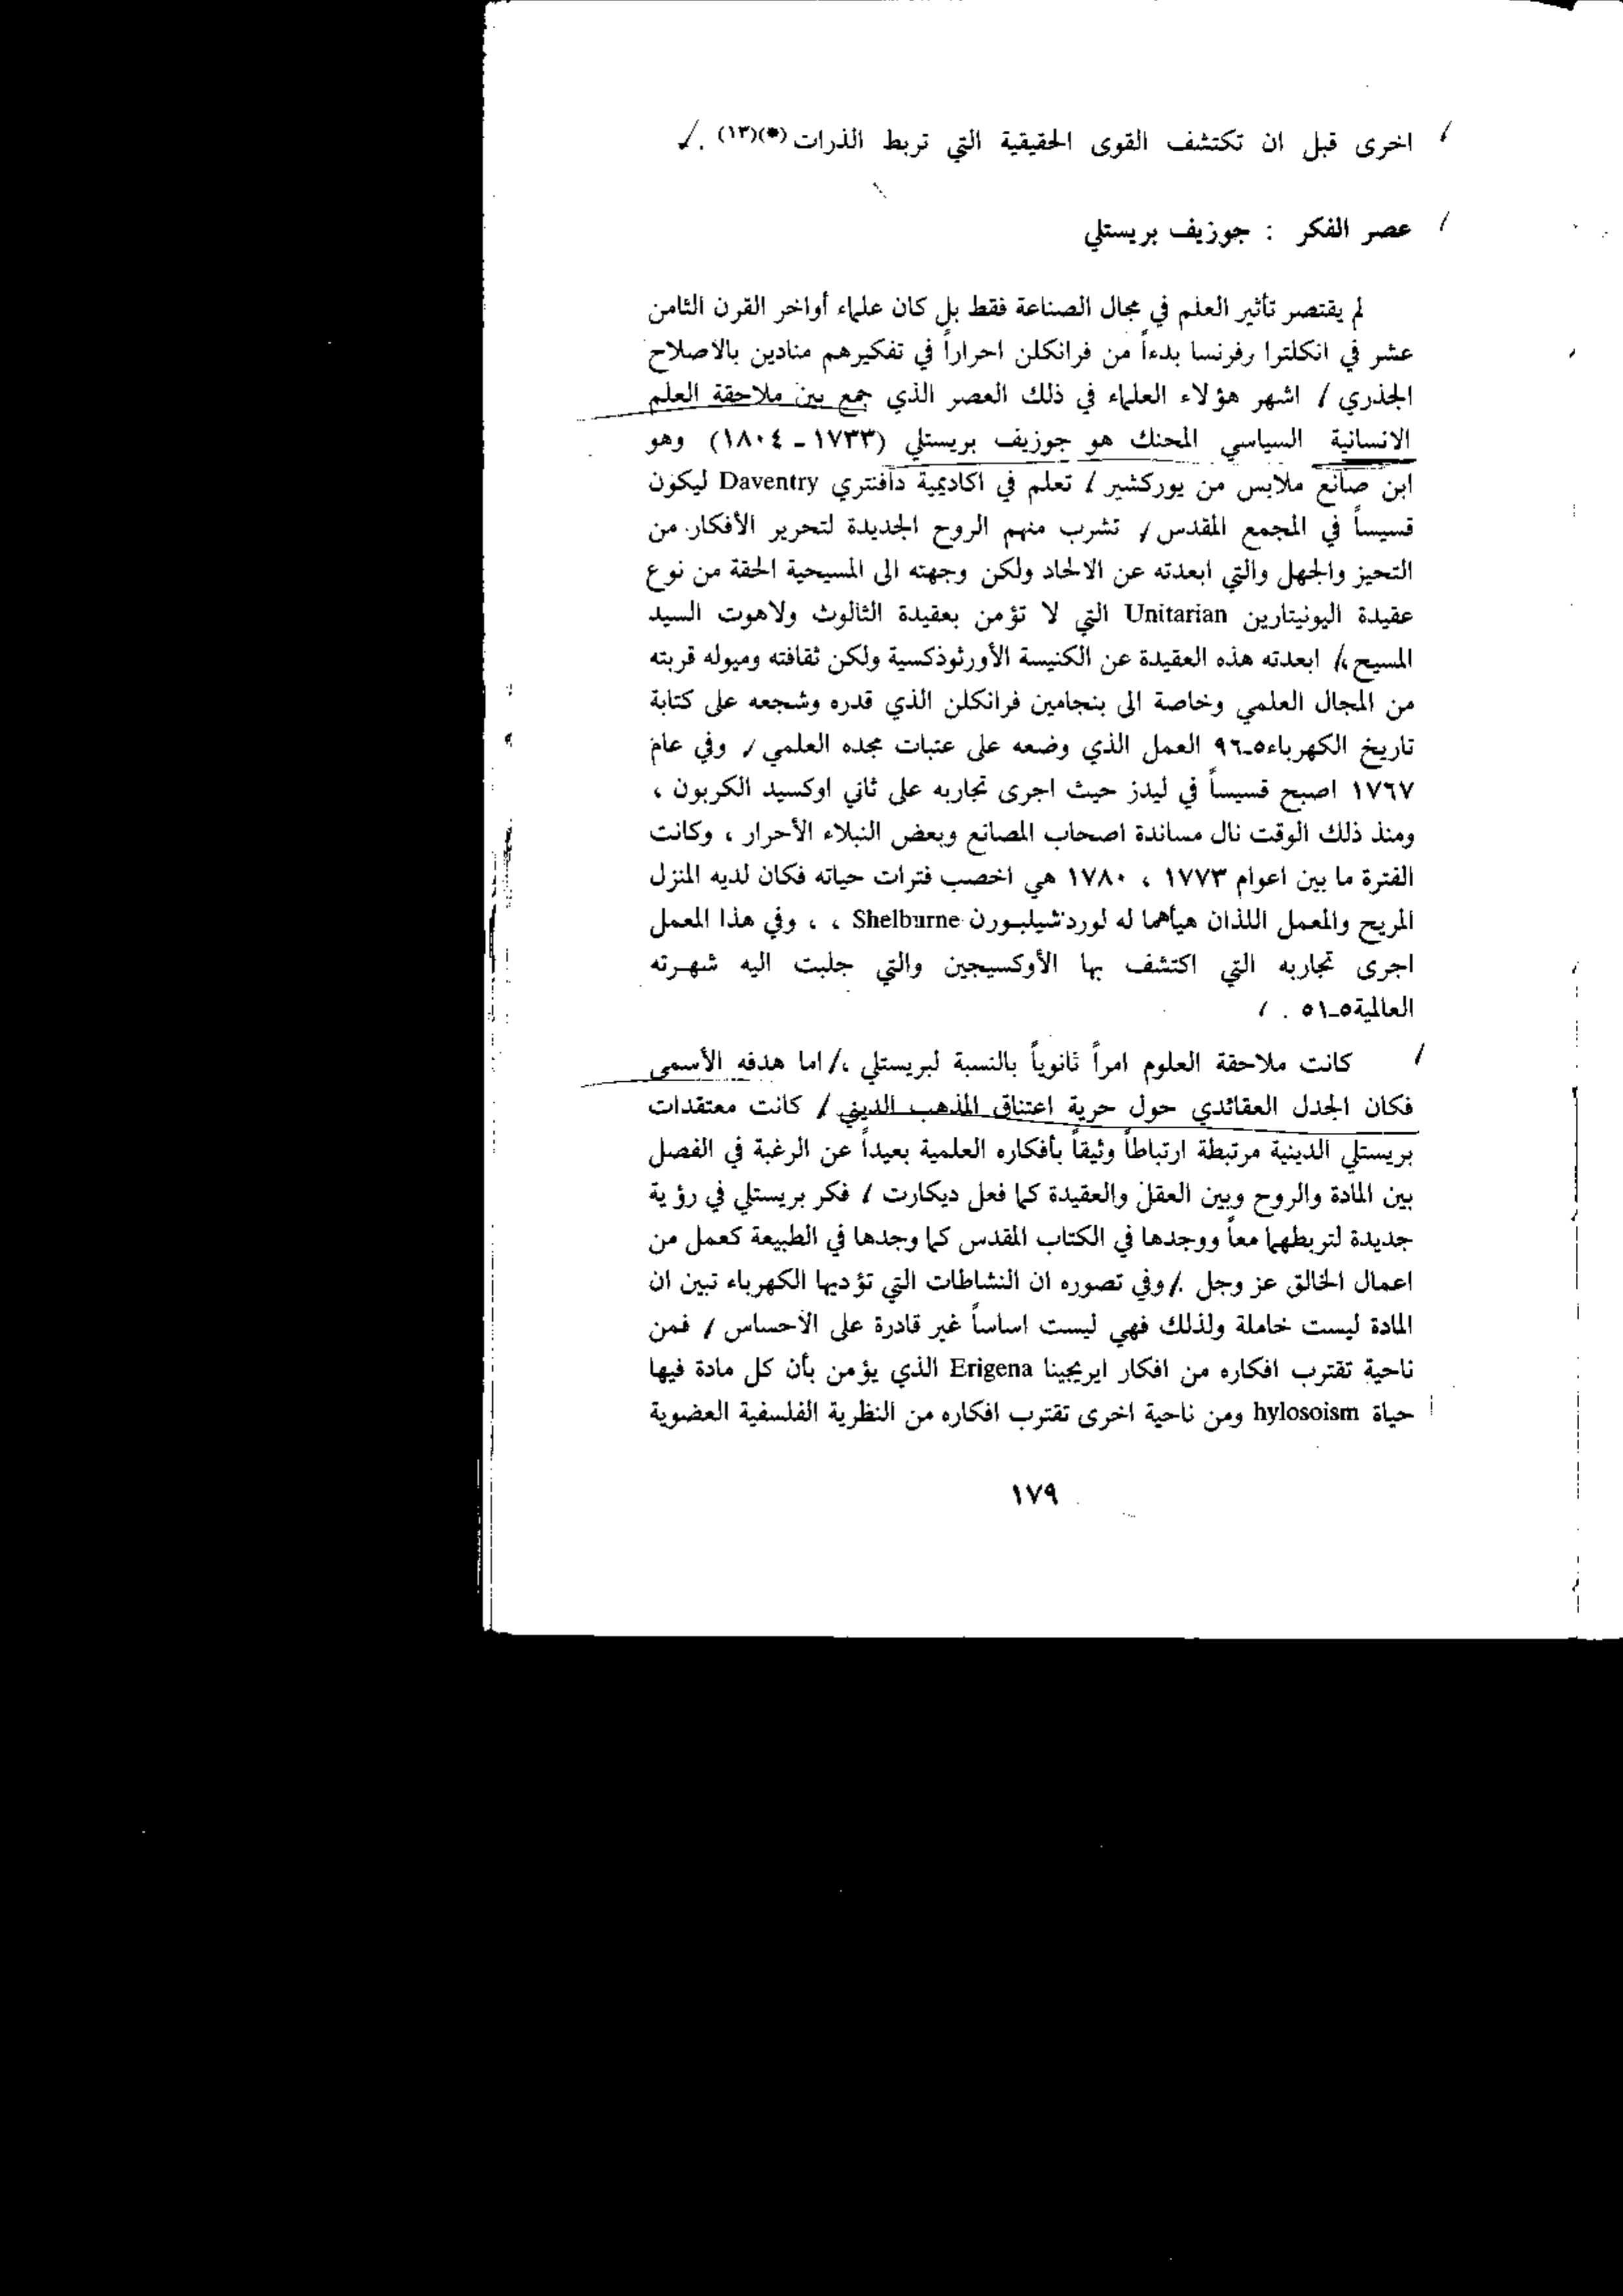 اخرى قبل ان تكتشف القوى الحقيقية التي تربط الذرات (*)(١٣) .
عصر الفكر : جوزيف بريستلي
لم يقتصر تأثير العلم في مجال الصناعة فقط بل كان علماء أواخر القرن الثامن
عشر في انكلترا وفرنسا بدءاً من فرانكلن احراراً في تفكيرهم منادين بالاصلاح
الجذري / اشهر هؤلاء العلماء في ذلك العصر الذي جمع بين ملاحقة العلم
الانسانية السياسي المحنك هو جوزيف بريستلي (١٧٣٣ - ١٨٠٤) وهو
ابن صانع ملابس من يوركشير / تعلم في اكاديمية دافنتري Daventry ليكون
قسيساً في المجمع المقدس / تشرب منهم الروح الجديدة لتحرير الأفكار من
التحيز والجهل والتي ابعدته عن الالحاد ولكن وجهته الى المسيحية الحقة من نوع
عقيدة اليونيتارين Unitarian التي لا تؤمن بعقيدة الثالوث ولاهوت السيد
المسيح ،/ ابعدته هذه العقيدة عن الكنيسة الأورثوذكسية ولكن ثقافته وميوله قربته
من المجال العلمي وخاصة الى بنجامين فرانكلن الذي قدره وشجعه على كتابة
تاريخ الكهرباء٥ـ٩٦ العمل الذي وضعه على عتبات مجده العلمي / وفي عام
١٧٦٧ اصبح قسيساً في ليدز حيث اجرى تجاربه على ثاني اوكسيد الكربون ،
ومنذ ذلك الوقت نال مساندة اصحاب المصانع وبعض النبلاء الأحرار ، وكانت
الفترة ما بين اعوام ١٧٧٣ ، ١٧٨٠ هي اخصب فترات حياته فكان لديه المنزل
المريح والمعمل اللذان هيأهما له لورد شيلبورن Shelburne ، ، وفي هذا المعمل
اجرى تجاربه التي اكتشف بها الأوكسيجين والتي جلبت اليه شهرته
العالمية٥ـ٥١ . /
كانت ملاحقة العلوم امراً ثانوياً بالنسبة لبريستلي ،/ اما هدفه الأسمى
فكان الجدل العقائدي حول حرية اعتناق المذهب الديني / كانت معتقدات
بريستلي الدينية مرتبطة ارتباطاً وثيقاً بأفكاره العلمية بعيداً عن الرغبة في الفصل
بين المادة والروح وبين العقل والعقيدة كما فعل ديكارت / فكر بريستلي في رؤية
جديدة لتربطهما معاً ووجدها في الكتاب المقدس كما وجدها في الطبيعة كعمل من
اعمال الخالق عز وجل ./ وفي تصوره ان النشاطات التي تؤديها الكهرباء تبين ان
المادة ليست خاملة ولذلك فهي ليست اساساً غير قادرة على الاحساس / فمن
ناحية تقترب افكاره من افكار ايريجينا Erigena الذي يؤمن بأن كل مادة فيها
حياة hylosoism ومن ناحية اخرى تقترب افكاره من النظرية الفلسفية العضوية
١٧٩